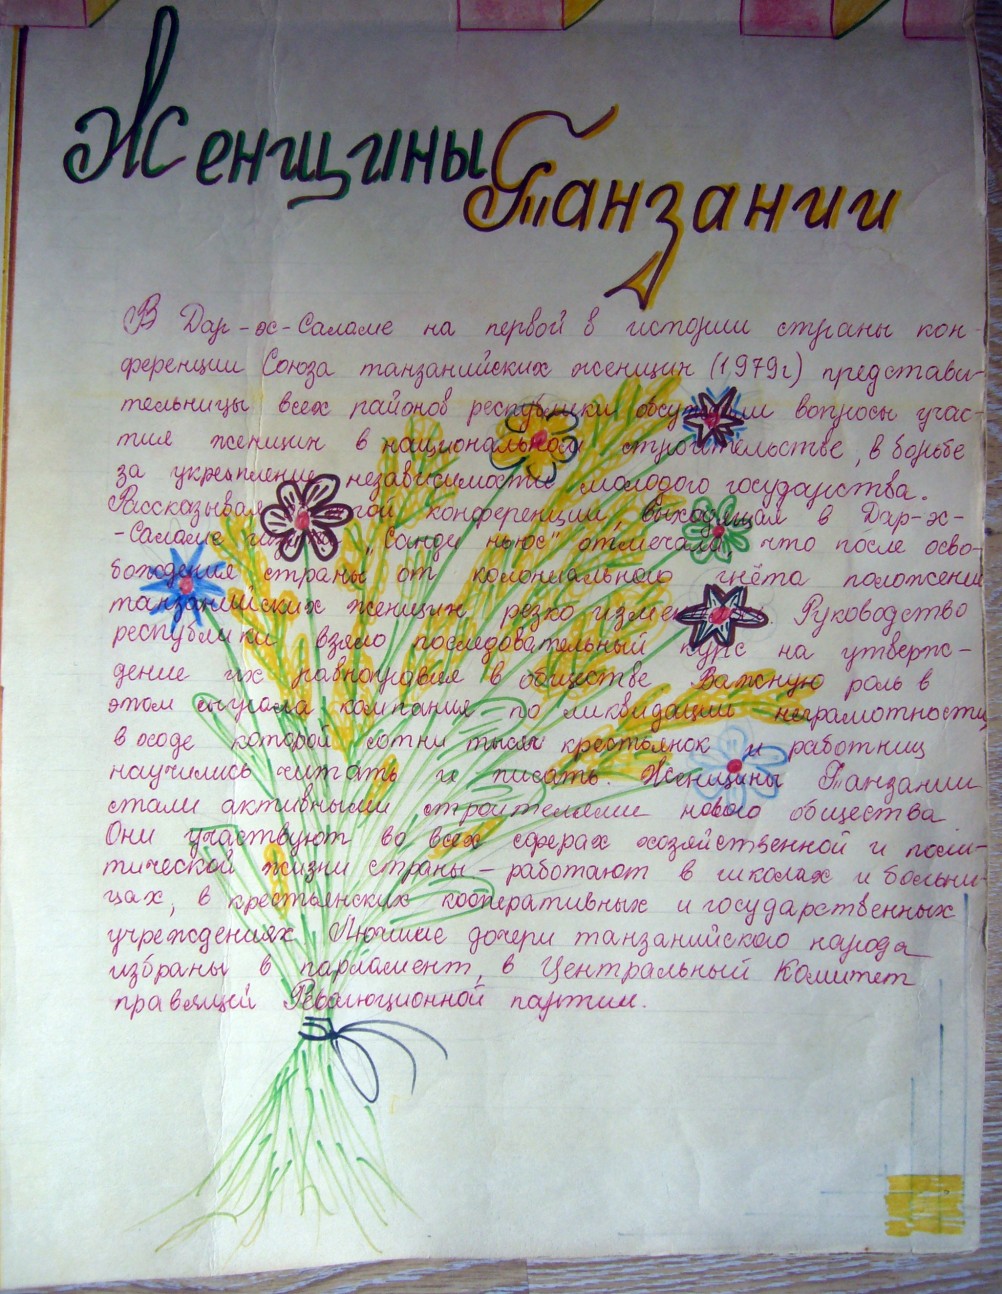 Женщины
Танзании
В Дар-эс-Саламе на первой в истории страны кон-
ференции Союза танзанийских женщин (1979г) представи-
тельницы всех районов республики обсуждали вопросы учас-
тия женщин в национальном строительстве, в борьбе
за укрепление независимости молодого государства.
Рассказывая этой конференции, выходящая в Дар-эс-
-Саламе газета „Санди ньюс" отмечала, что после осво-
бождения страны от колониального гнёта положение
танзанийских женщин резко Руководство
республики взяло последовательный курс на утверж-
дение их равноправия в обществе. Важную роль в
этом сыграла компания по ликвидации неграмотности,
в ходе которой сотни тысяч крестьянок и работниц
научились читать и писать. Женщины Танзании
стали активными строителями нового общества.
Они участвуют во всех сферах хозяйственной и поли-
тической жизни страны - работают в школах и больни-
цах, в крестьянских кооперативных и государственных
учреждениях. Лучшие дочери танзанийского народа
избраны в парламент, в Центральный Комитет
правящей Революционной партии.